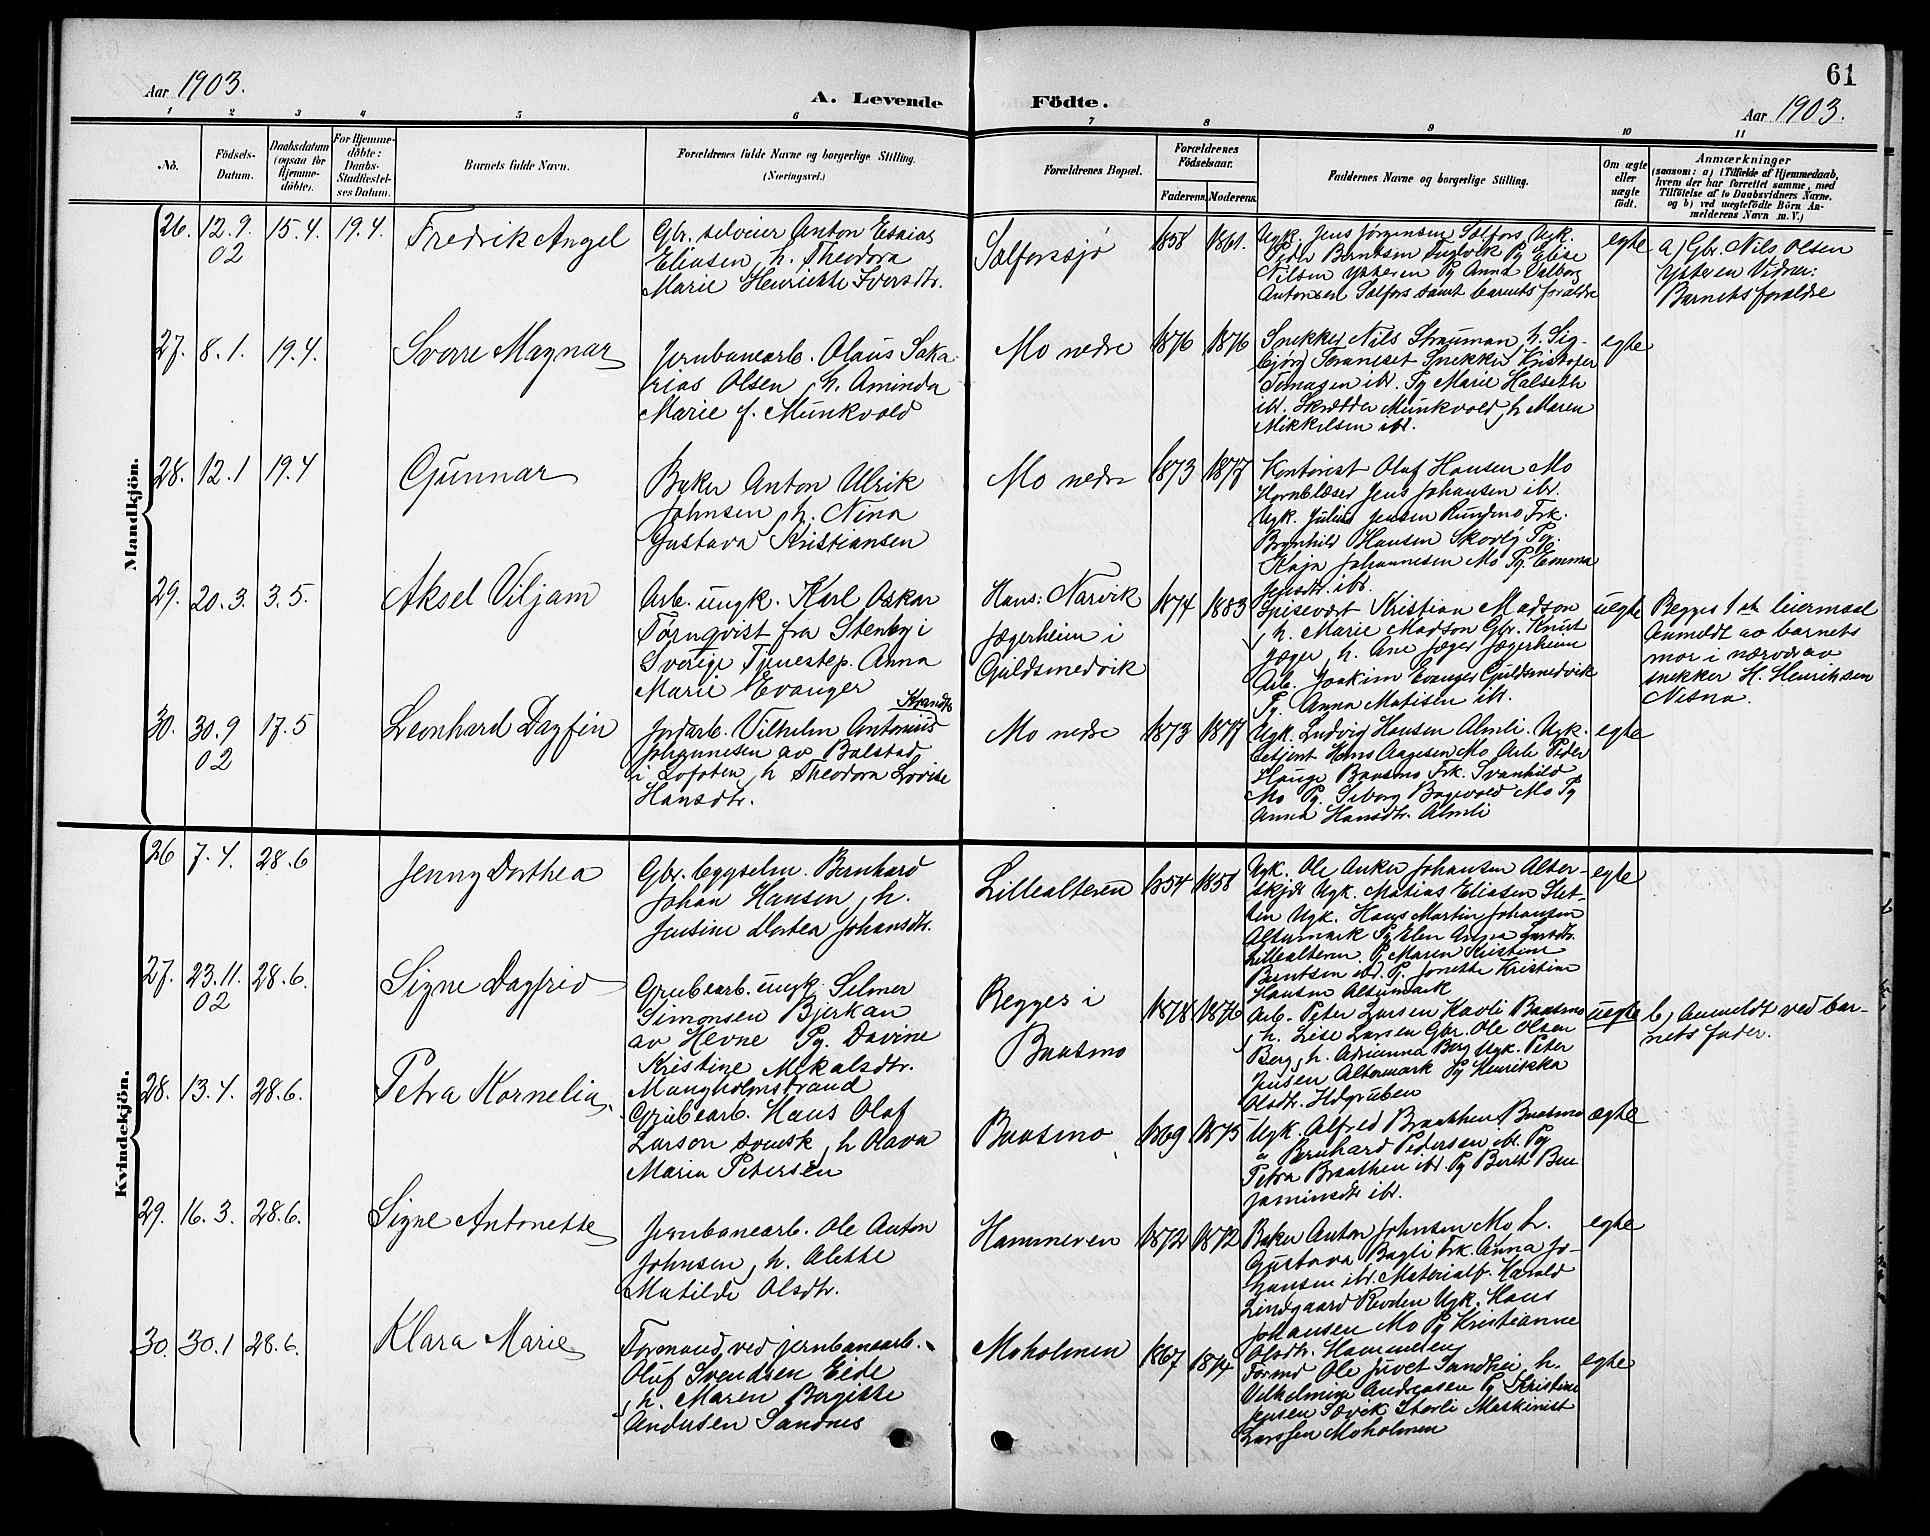 Aar 1903.
A. Levende
Födte.
61
Aar 1903.
1 2 3 4 5 6 7 8 9 10 11
No.
Födsels-
Datum.
Daabsdatum
(ogsaa for
Hjemme-
döbte).
For Hjemme-
döbte:
Daabs-
Stadfæstel-
ses Datum.
Barnets fulde Navn.
Forældrenes fulde Navne og borgerlige Stilling.
(Næringsvei.)
Forældrenes Bopæl.
Forældrenes
Födselsaar.
Faderens. Moderens.
Faddernes Navne og borgerlige Stilling.
Om ægte
eller
uægte
födt.
Anmærkninger
(saasom: a) i Tilfælde af Hjemmedaab,
hvem der har forrettet samme, med
Tilföielse af to Daabsvidners Navne.
og b) ved uægtefödte Börn An-
melderens Navn m. V.)
Mandkjön.
26. 12.9. 02 15.4. 19.4. Fredrik Angel
Gbr. selveier Anton Esaias
Eliasen, h. Theodora
Marie Henrikke Iversdtr.
Selforssjø 1858 1861.
Ugk. Jens Jørgensen Selfors Ugk.
Peder Berntsen Fuglvik Pg Elise
Nilsen Ytteren Pg Anna Valborg
Antonsen Selfors samt barnets forældre
egte
a) Gbr. Nils Olsen
Ytteren Vidner:
Barnets forældre
27. 8.1. 19.4. Sverre Magnar
Jernbanearb. Olaus Saka
rias Olsen, h. Aminda
Marie f. Munkvold
Mo nedre 1876 1876
Snekker Nils Strauman, h. Sig-
bjørg Forancset Snekker Kristofer
Tomasen ibr. Pg Marie Halseth
ibr. Skrædder Munkvold, h Maren
Mikkelsen ibr.
egte
28. 12.1 19.4 Gunnar
Baker Anton Ulrik
Johnsen, h. Nina
Gustava Kristiansen
Mo nedre 1873 1877
Kontorist Olaf Hansen Mo
Hornblæser Jens Johansen ibr.
Ugk. Julius Jensen Rundmo Frk.
Brynhild Hansen Skovlg Pg.
Kaja Johannesen Mo Pg. Emma
Jensdtr. ibr.
29. 20.3. 3.5. Aksel Viljam
Arb. ungk. Karl Oskar
Törnqvist fra Stenby i
Sverige Tjenestep. Anna
Marie Evanger
Hans: Narvik
Jægerheim i
Guldsmedvik
1874 1883
Spisevært Kristian Madson
, h. Marie Madson Gbr. Knut
Jæger, h. Ane Jæger Jægerheim
Arb. Joakim Evanger Guldsmedvik
Pg. Anna Matisen ibr.
uegte
Begges 1ste leiermaal
Anmeldt av barnets
mor i nærvær av
snekker H. Henriksen
Nesna.
30. 30.9 02 17.5 Leonhard Dagfin
Strandtr
Jordarb. Vilhelm Antonius
Johannesen av Balstad
i Lofoten, h Theodora Lovise
Hansdtr.
Mo nedre 1873 1877
Ugk. Ludvig Hansen Almli. Ugk.
Hans Aagesen Mo Arb Peder
Hauge Baasmo Frk. Svanhild
Mo Pg. Seborg Bagevold Mo Pg
Anna Hansdtr. Almli
egte
Kvindekjön.
26 7.4. 28.6 Jenny Dorthea
Gbr. bygselm. Bernhard
Johan Hansen, h.
Jensine Dortea Johansdtr.
Lillealteren 1854 1858
Ugk. Ole Anker Johansen Alter-
skjær Ugk. Matias Eliasen Slet-
ten Ugk. Hans Martin Johansen
Altermark Pg Elen Anna Larsdtr.
Lillealteren. P. Maren Kristine
Berntsen ibr. P. Jonette Kristine
Hansen Altermark
egte
27. 23.11. 02 28.6. Signe Dagfrid
Grubearb. ungk. Selmer
Simonsen Bjerkan
av Hevne Pg. Davine
Kristine Mikalsdtr.
Mangholmstrand
Begges i
Baasmo
1878 1876
Arb. Peter Larsen Kavli Baasmo
, h. Lise Larsen Gbr. Ole Olsen
Berg, h. Adrianna Berg Ugk. Peter
Jensen Altermark Pg Henrikka
Olsdtr. Ildgruben
uegte
b, Anmeldt ved bar-
nets fader.
28. 13.4. 28.6. Petra Kornelia
Grubearb. Hans Olof
Larson svensk, h Olava
Maria Petersen
Baasmo 1869 1875
Ugk. Alfred Braathen Baasmo
" Bernhard Pedersen ibr. Pg
Petra Braathen ibr. Pg Beret Ben
jaminsdtr ibr.
ægte
29. 16.3. 28.6. Signe Antonette
Jernbanearb. Ole Anton
Johnsen, h. Alette
Matilde Olsdtr.
Hammeren 1872 1872
Baker Anton Johnsen Mo h.
Gustava Bagli Frk. Anna Jo-
hansen ibr. Materialf. Harald
Lindgaard Revden Ugk. Hans
Johansen Mo Pg Kristianne
Olsdtr. Hammeren
egte
30. 30.1 28.6. Klara Marie
Formand ved jernbanearb.
Oluf Svendsen Eide
, h. Maren Bergitte
Andersen Sandnes
Moholmen 1867 1874
Formd Ole Juvet Sandhei, h.
Vilhelmine Andreasen Pg Kristine
Jensen Sævik Storli Maskinist
Larssen Moholmen
egte